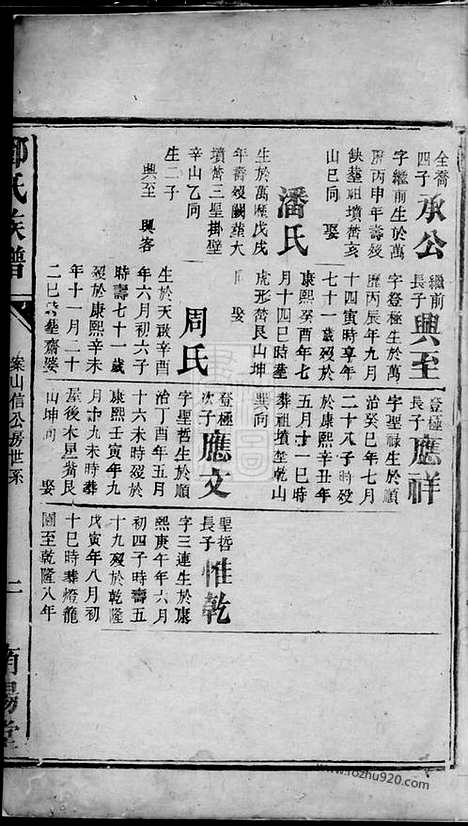 全喬
四子
承公
字繼前生於萬
歷丙申年壽歿
缺塟墳嵜亥
山巳向 娶
潘氏
生於萬歷戊戌
年嵜歿闕塟大
墳嵜三星掛壁
辛山乙向
生二子
興至 興客
繼前
長子
興至
字登極生於萬
歷丙辰年九月
十四寅時享年
七十一歲歿於
康熙癸酉年七
月十四巳時塟
虎形嵜艮山坤
向 娶
周氏
生於天啟辛酉
年六月初六子
時壽七十一歲
歿於康熙辛未
年十一月二十
二巳時塟齋婆
登極
長子
應祥
字聖祿生於順
治癸巳年七月
二十八子時歿
於康熙辛丑年
五月十一巳時
葬祖墳塋乾山
巽向
登極
次子
應文
字聖哲生於順
治丁酉年五月
十六未時歿於
康熙壬寅年九
月十九未時葬
屋後木星嵜艮
山坤向 娶
聖哲
長子
惟乾
字三連生於康
熙庚午年六月
初四子時壽五
十九歿於乾隆
戊寅年八月初
十巳時葬燈龍
圖至乾隆八年
鄧氏族譜
案山信公房世系
二
南陽堂
www.rozhu920.com